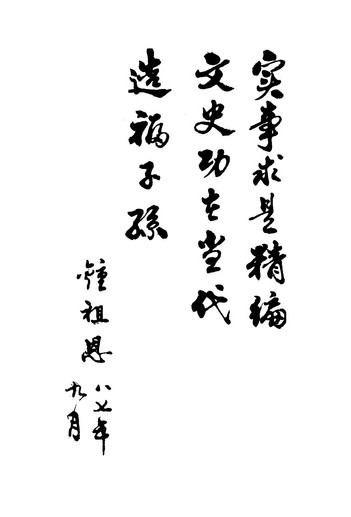 实事求是精编
文史功在当代
造福子孫
鍾祖恩
八七年
九月